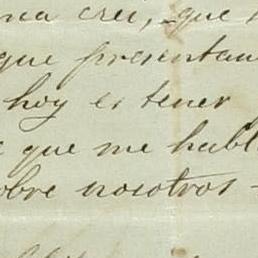 crei, que
que presentan
hoy es tener
que me habl
obre nosotros -